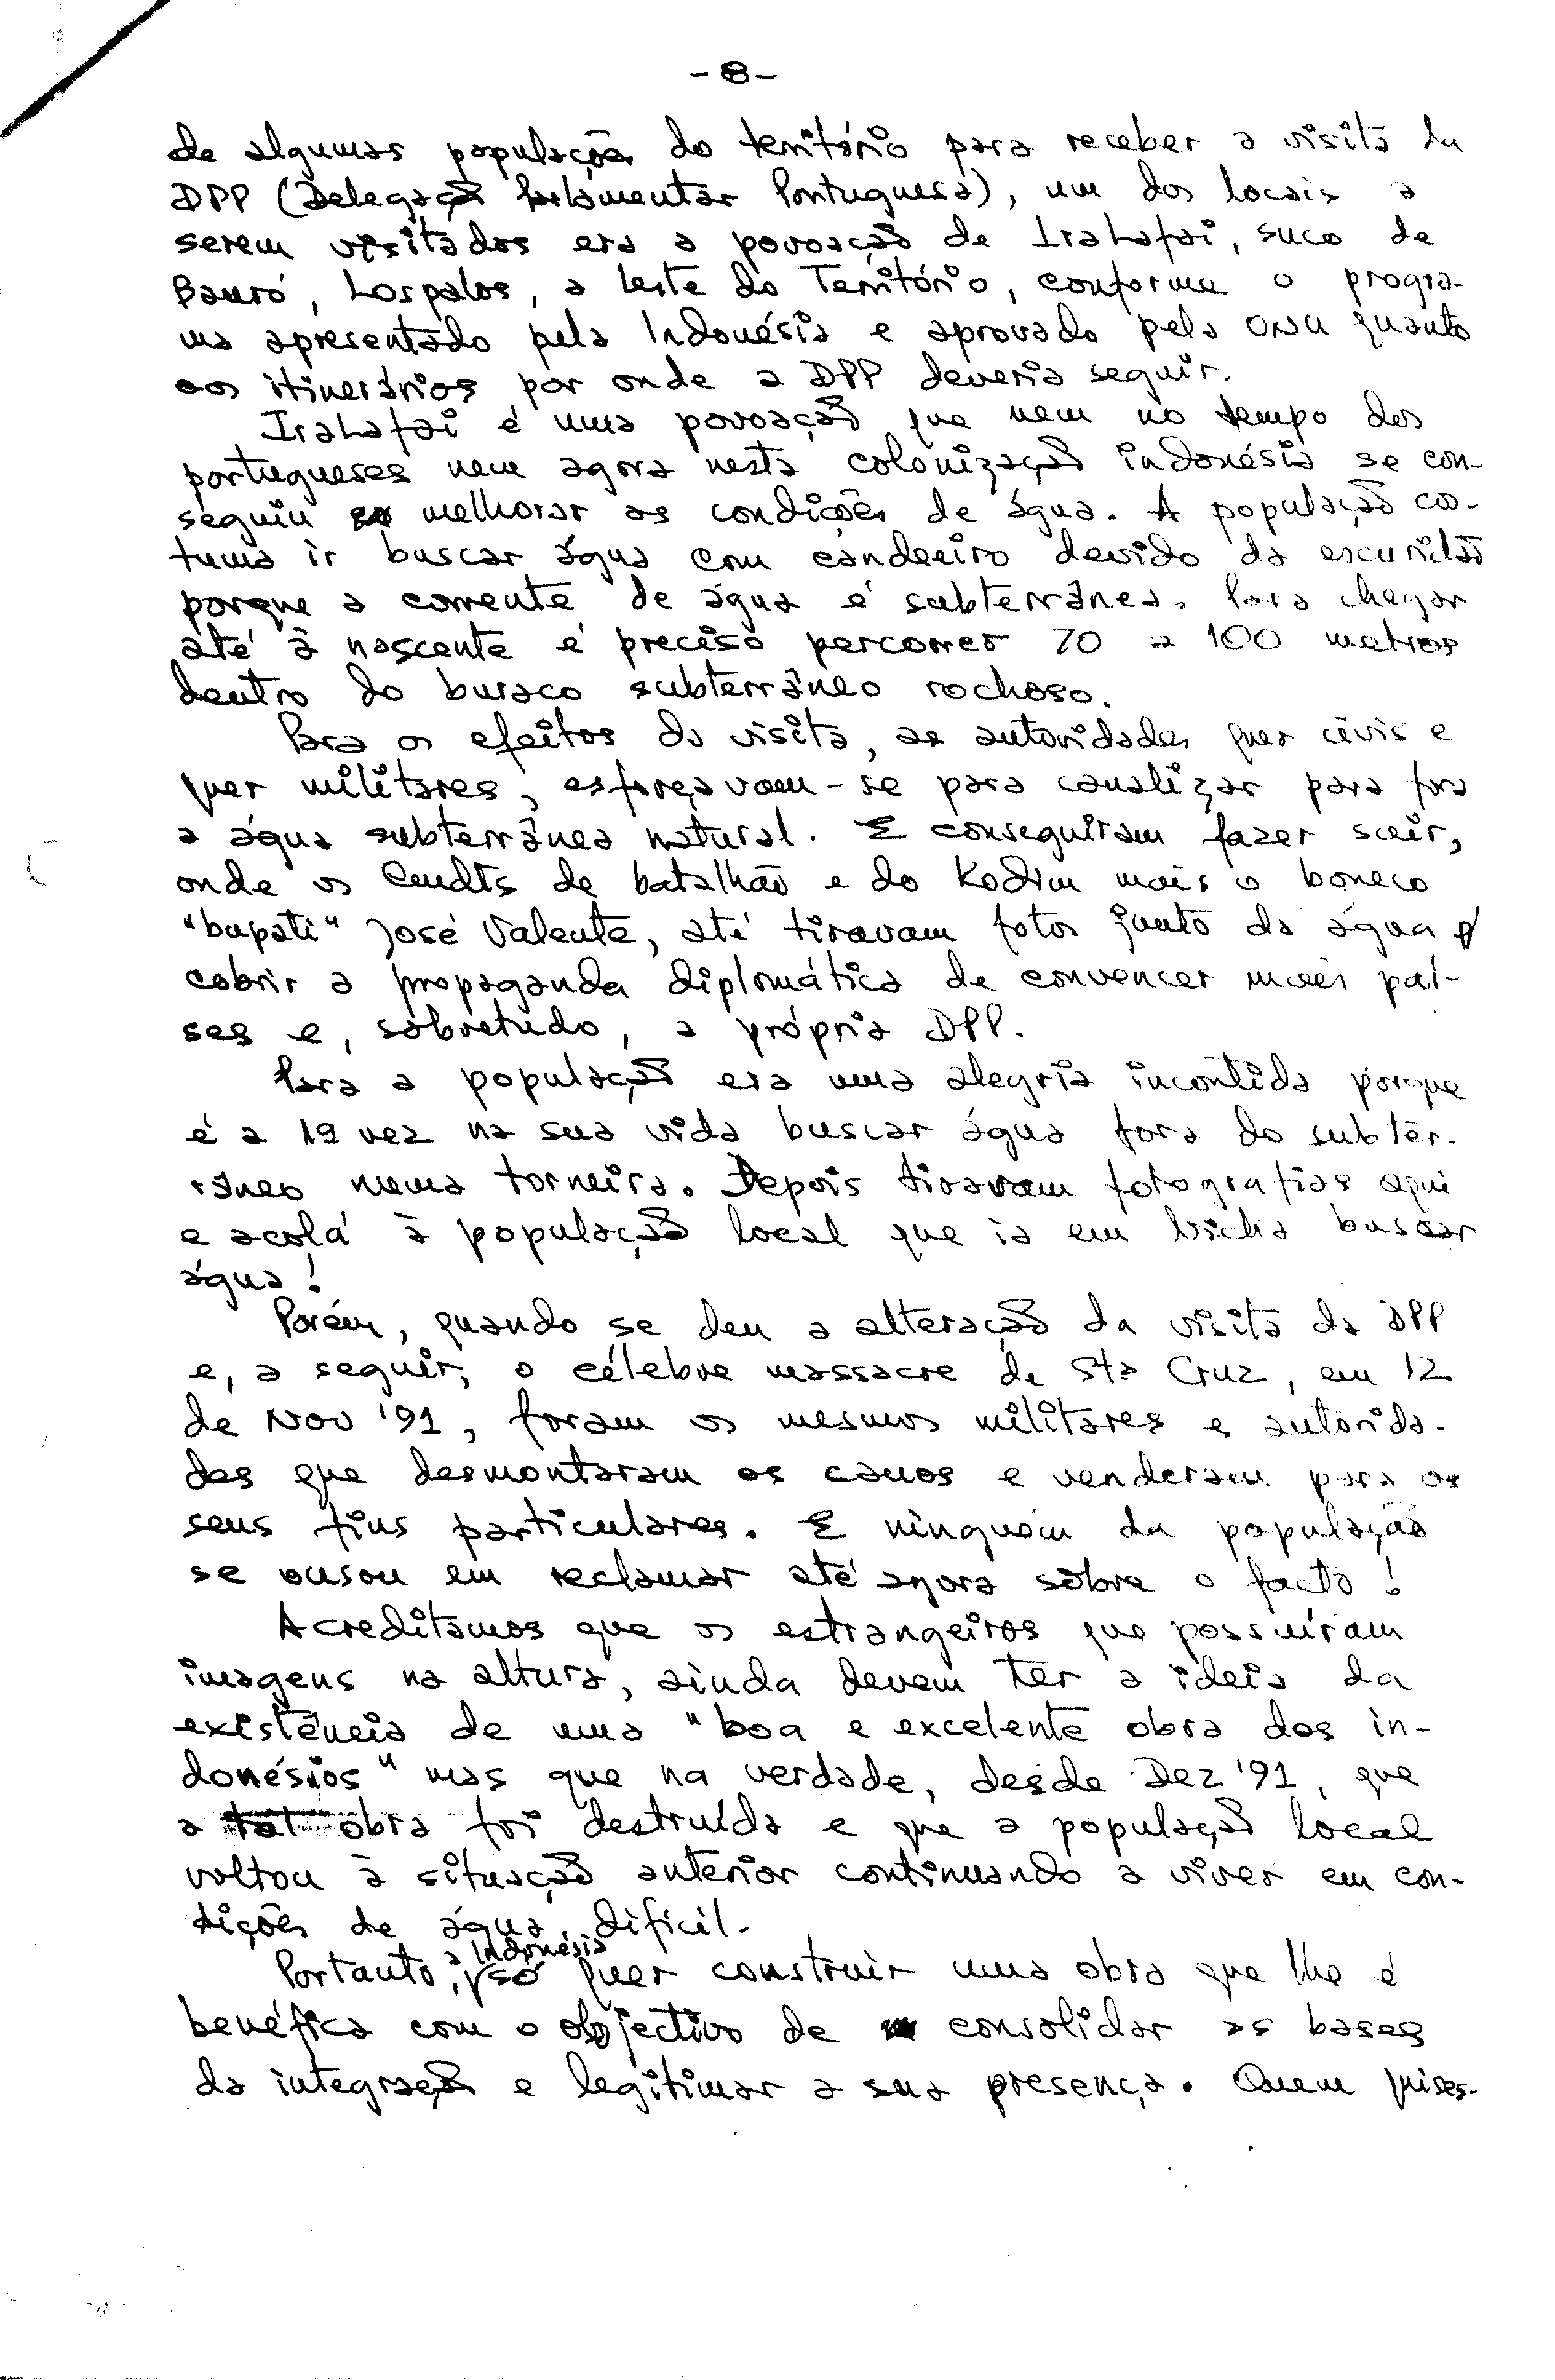 -8-
de algumas populações do território para receber a visita da
DPP (Delegação Parlamentar Portuguesa), um dos locais a
serem visitados era a povoação de IraLafai, suco de
Bauró, Lospalos, a leste do Território, conforme o progra-
ma apresentado pela Indonésia e aprovado pela ONU quanto
aos itinerários por onde a DPP deveria seguir.
IraLafai é uma povoação que nem no tempo dos
portugueses nem agora nesta colonização indonésia se con-
seguiu melhorar as condições de água. A população cos-
tuma ir buscar água com candeeiro devido da escuridão
porque a corrente de água é subterrânea. Para chegar
até à nascente é preciso percorrer 70 a 100 metros
dentro do buraco subterrâneo rochoso.
Para os efeitos da visita, as autoridades quer civis e
quer militares, esforçavam-se para canalizar para fora
a água subterrânea natural. E conseguiram fazer sair,
onde os Cmdts de batalhão e do Kodim mais o boneco
"bupati" José Valente, até tiravam fotos junto da água p/
cobrir a propaganda diplomática de convencer mais paí-
ses e, sobretudo, a própria DPP.
Para a população era uma alegria incontida porque
é a 1ª vez na sua vida buscar água fora do subter-
râneo numa torneira. Depois tiravam fotografias aqui
e acolá à população local que ia em bicha buscar
água!
Porém, quando se deu a alteração da visita da DPP
e, a seguir, o célebre massacre de Sta Cruz, em 12
de Nov '91, foram os mesmos militares e autorida-
des que desmontaram os canos e venderam para os
seus fins particulares. E ninguém da população
se ousou em reclamar até agora sobre o facto!
Acreditamos que os estrangeiros que possuíram
imagens na altura, ainda devem ter a ideia da
existência de uma "boa e excelente obra dos in-
donésios" mas que na verdade, desde Dez '91, que
a tal obra foi destruída e que a população local
voltou à situação anterior continuando a viver em con-
dições de água difícil.
Portanto, a Indonésia só quer construir uma obra que lhe é
benéfica com o objectivo de consolidar as bases
da integração e legitimar a sua presença. Quem quises-